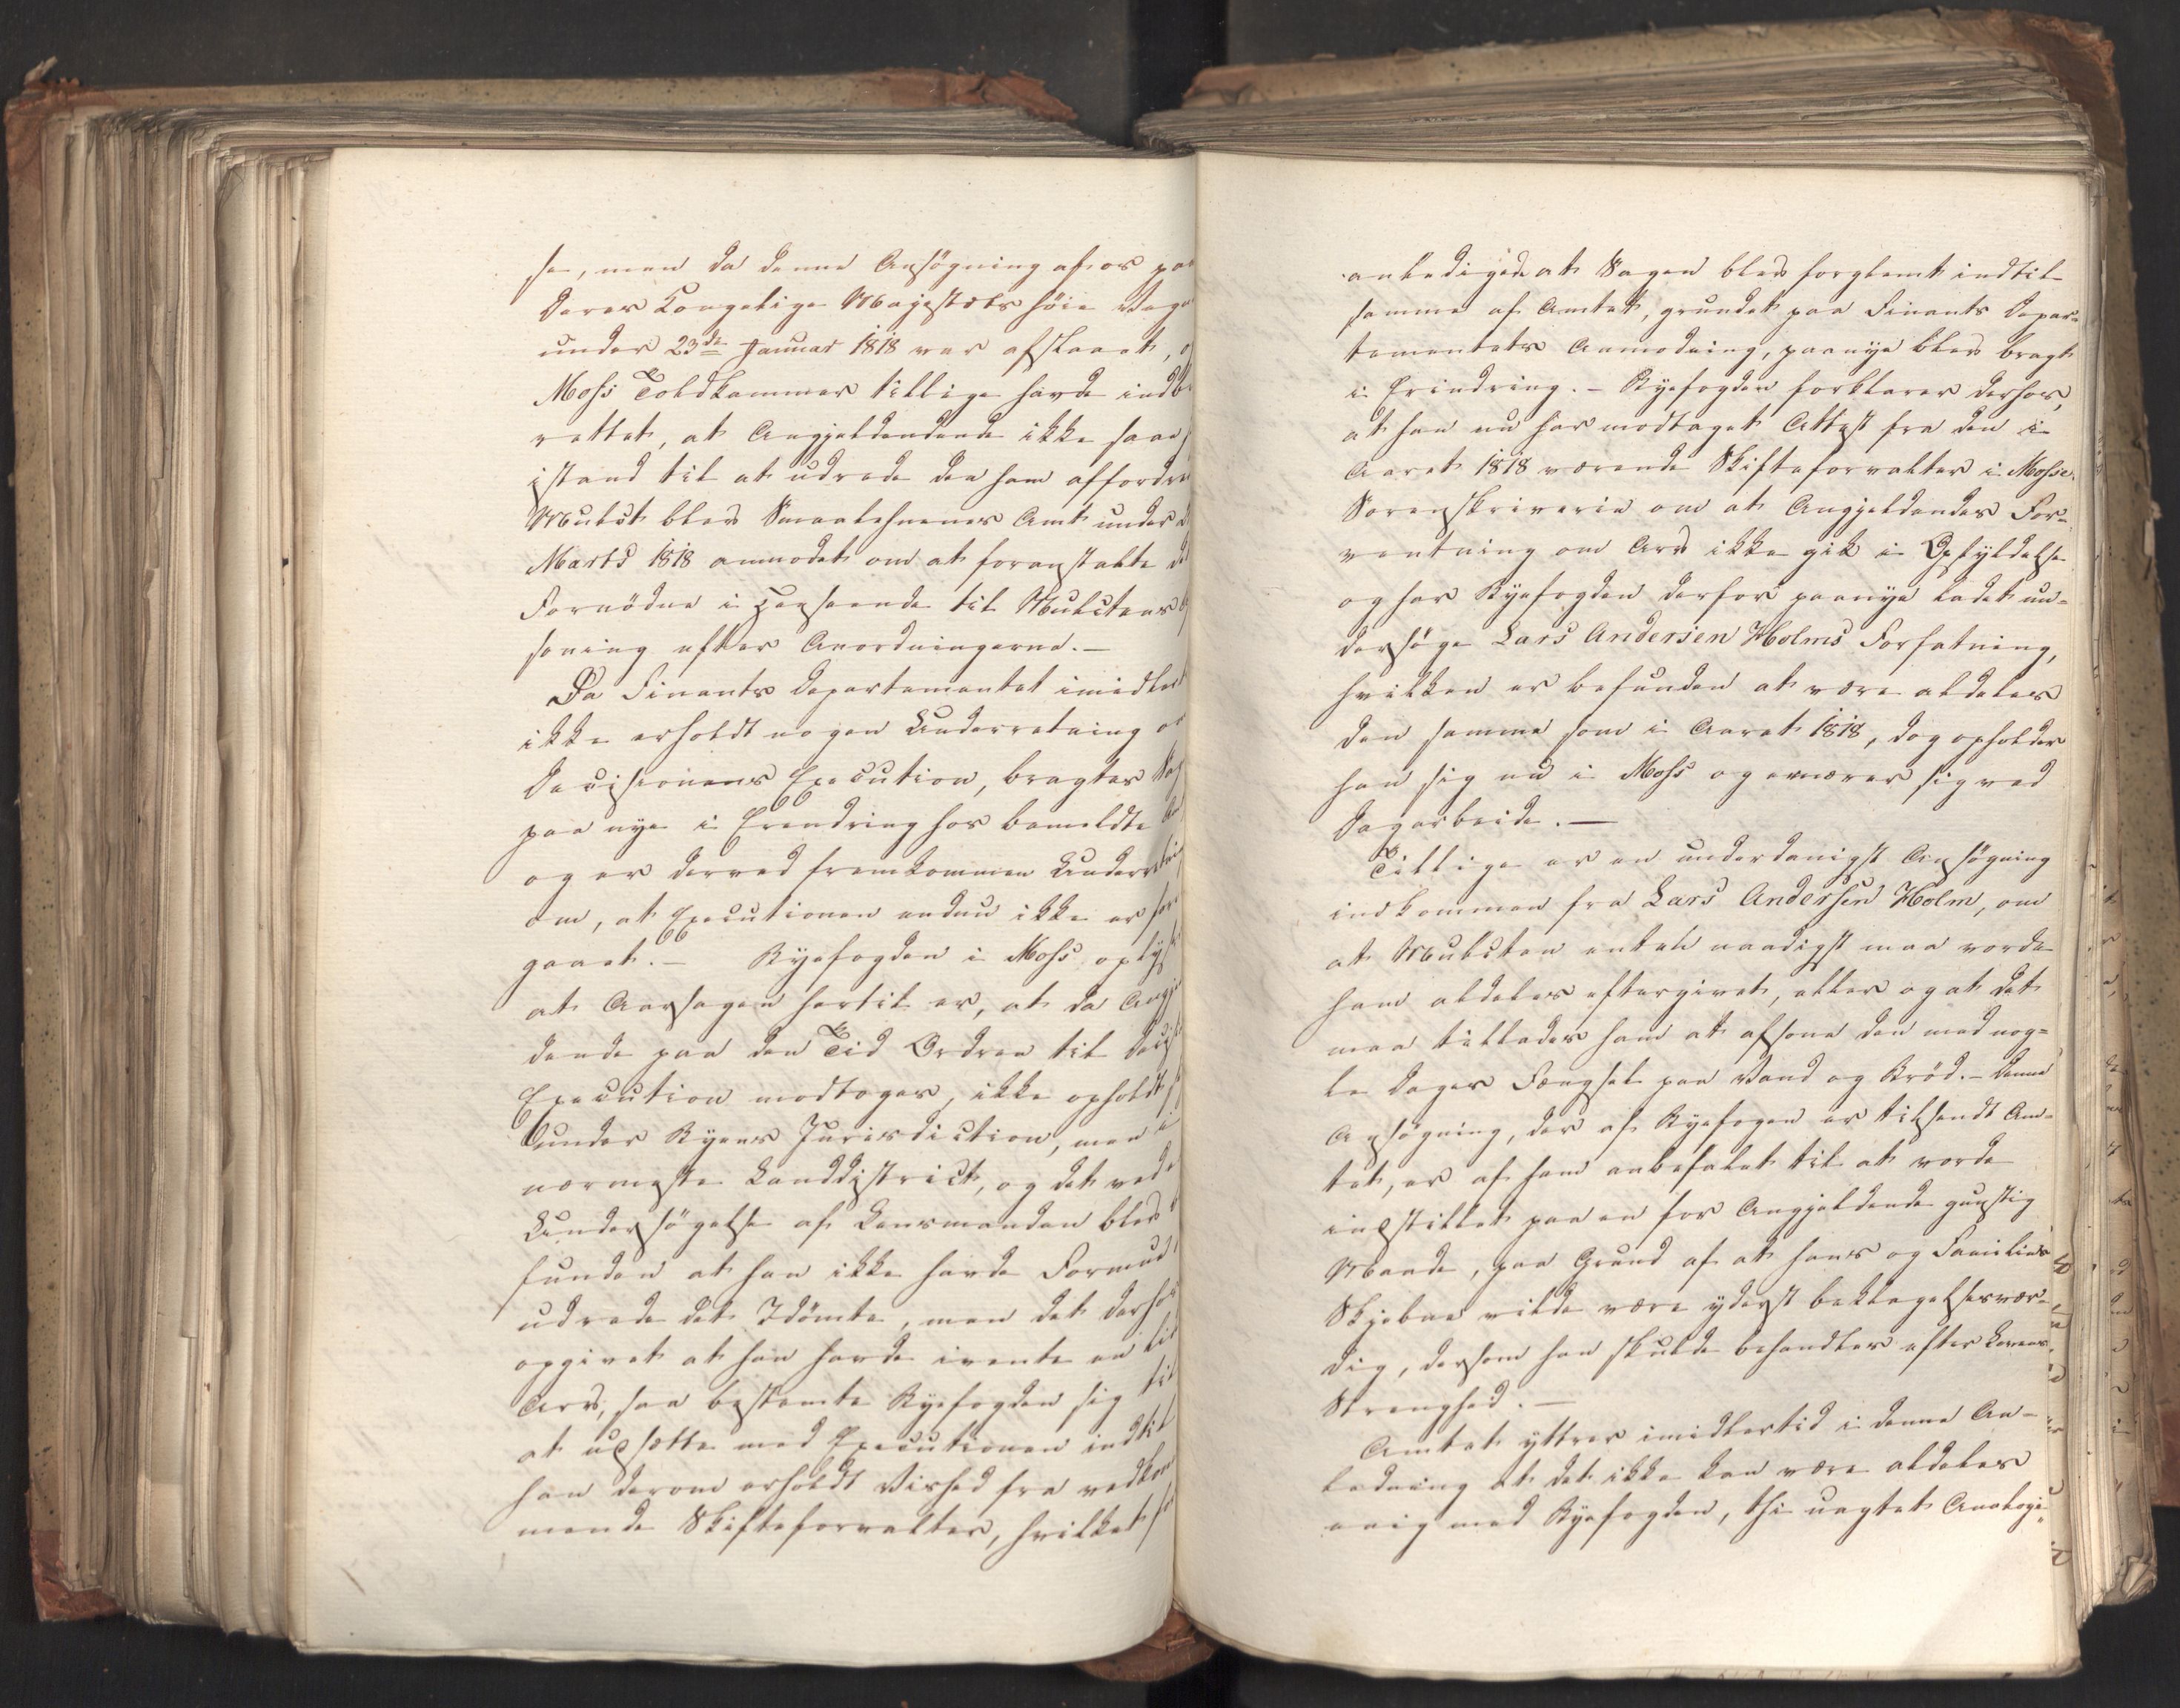 se, men da denne Ansøgning af os paa
Deres Kongelige Majestæts høie Vegne
under 23de Januar 1818 var afslaaet, og
Moss Toldkammer tillige havde indbe
rettet, at Angjeldendende ikke saaes
istand til at udrede den ham affordrede
Mulct blev Smaalehnenes Amt under
Marts 1818 anmodet om at foranstalte det
Fornödne i Henseende til Mulctens af
soning efter Anordningerne.—
Da Finants Departementet imidlertid
ikke erholdt nogen Underretning om
Decisionens Execution, bragtes Sagen
paa nye i Erendring hos bemeldte Amt
og er derved fremkommen Underretning
om, at Executionen endnu ikke er fore
gaaet.— Byefogden i Moss oplyser
at Aarsagen hertil er, at da Angjel
dende paa den Tid Ordren til Decisionens
Execution modtoges, ikke opholdt sig
under Byens Jurisdiction, men i
nærmeste Landdistrict, og det ved
Undersögelse af Lensmanden blev be
funden at han ikke havde Formue
udrede det Idömte, men det derhos
opgivet at han havde ivente en liden
Arv, saa bestemte Byefogden sig til
at udsætte med Executionen indtil
han derom erholdt Vished fra vedkom
mende Skifteforvalter, hvilket for
anledigede at Sagen blev forglemt indtil
samme af Amtet, grundet paa Finants Depar-
tementets Anmodning, paanye blev bragt
i Erindring.— Byefogden forklarer derhos,
at han nu har modtaget Attest fra den i
Aaret 1818 værende Skifteforvalter i Mosse
Sorenskriverie om at Angjeldendes For-
ventning om Arv ikke gik i Opfyldelse
og har Byefogden derfor paanye ladet un-
dersöge Lars Andersen Holms Forfatning,
hvilken er befunden at være aldeles
den samme som i Aaret 1818, dog opholder
han sig nu i Moss og ernærer sig ved
Dagarbeide.—
Tillige er en underdanigst Ansögning
indkommen fra Lars Andersen Holm, om
at Mulcten enten naadigst maa vorde
ham aldeles eftergivet, eller og at det
maa tillades ham at afsone den med nog-
le Dages Fængsel paa Vand og Bröd.— Denne
Ansögning, der af Byefogen er tilsendt Am-
tet, er af ham anbefalet til at vorde
indstillet paa en for Angjeldende gunstig
Maade, paa Grund af at hans og Families
Skjebne vilde være yderst beklagelsesvær-
dig, dersom han skulde behandles efter Lovens
Strenghed.—
Amtet yttrer imidlertid i denne An-
ledning at det ikke kan være aldeles
enig med Byefogden, thi uagtet Analogi-